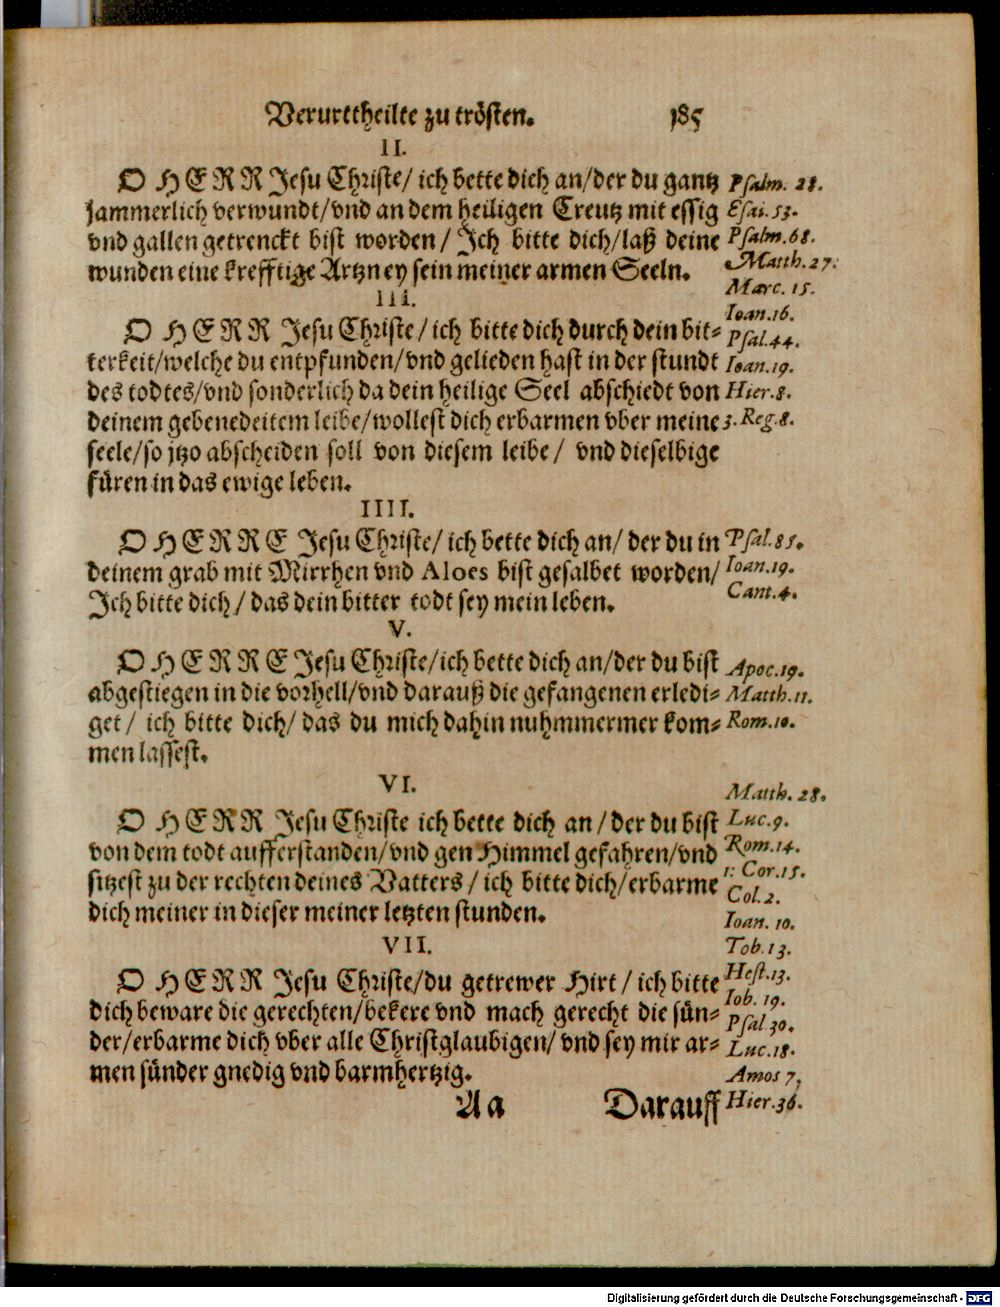 Verurttheilte zu trösten. 185
II.
O HERR Jesu Christe/ ich bette dich an/der du gantz Psalm. 28.
jammerlich verwundt/vnd an dem heiligen Creutz mit essig Esai.53.
vnd gallen getrenckt bist worden/ Ich bitte dich/laß deine Psalm.68.
wunden eine krefftige Artzney sein meiner armen Seeln. Matth.27.
Marc. 15.
III.
Ioan.16.
O HERR Jesu Christe/ ich bitte dich durch dein bit- Psal.44.
terkeit/welche du entpfunden/vnd gelieden hast in der stundt Ioan.19.
des todtes/vnd sonderlich da dein heilige Seel abschiedt von Hier.8.
deinem gebenedeitem leibe/wollest dich erbarmen vber meine 3.Reg.8.
seele/so jtzo abscheiden soll von diesem leibe/ vnd dieselbige
füren in das ewige leben.
IIII.
O HERRE Jesu Christe/ ich bette dich an/ der du in Psal.85.
deinem grab mit Mirrhen vnd Aloes bist gesalbet worden/ Ioan.19.
Ich bitte dich/ das dein bitter todt sey mein leben. Cant.4.
V.
O HERRE Jesu Christe/ich bette dich an/der du bist Apoc.19.
abgestiegen in die vorhell/vnd darauß die gefangenen erledi- Matth.11.
get/ ich bitte dich/ das du mich dahin nuhmmermer kom- Rom.10.
men lassest.
VI.
Matth. 28.
O HERR Jesu Christe ich bette dich an/der du bist Luc.9.
von dem todt aufferstanden/vnd gen Himmel gefahren/vnd Rom.14.
sitzest zu der rechten deines Vatters/ ich bitte dich/erbarme 1. Cor.15.
Col.2.
dich meiner in dieser meiner letzten stunden.
Ioan. 10.
VII.
Tob.13.
O HERR Jesu Christe/du getrewer Hirt/ ich bitte Hest.13.
dich beware die gerechten/bekere vnd mach gerecht die sün- Iob. 19.
Psal.30.
der/erbarme dich vber alle Christglaubigen/ vnd sey mir ar- Luc.18.
men sünder gnedig vnd barmhertzig. Amos 7.
Aa Darauff Hier.36.
Digitalisierung gefördert durch die Deutsche Forschungsgemeinschaft - DFG